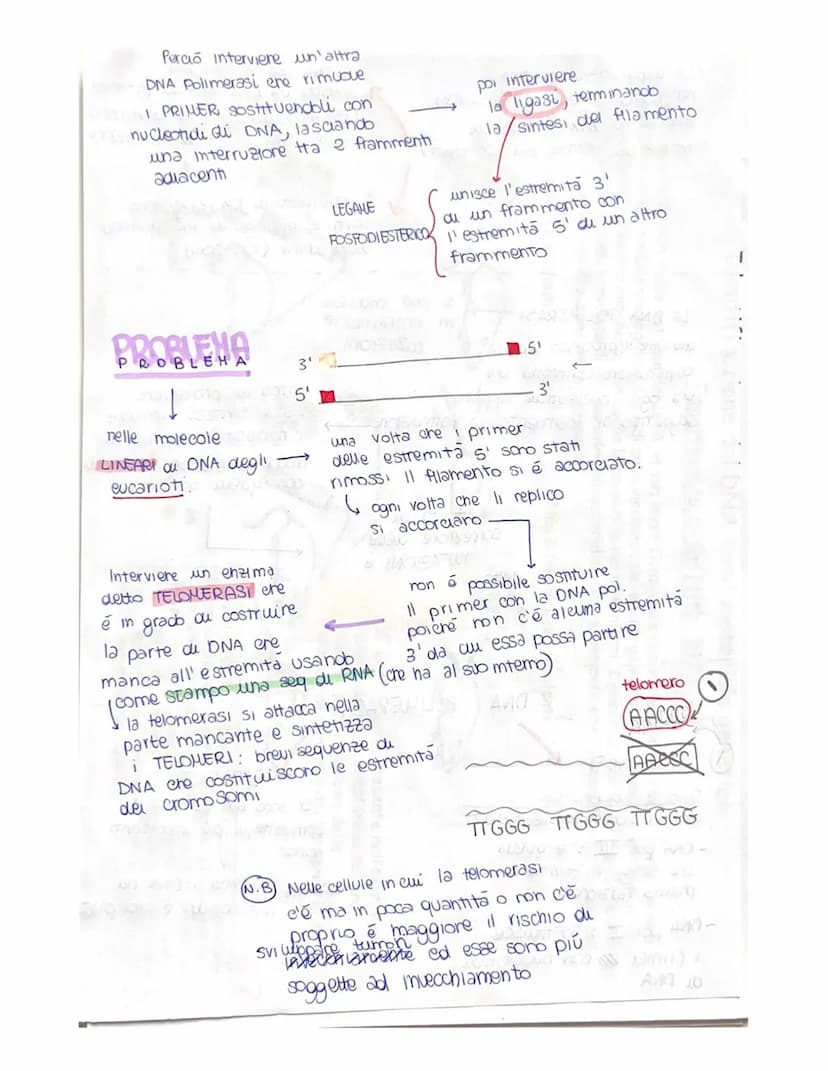 Perciò interviene un'altra
DNA Polimerasi che rimuove
i PRIMER sostituendoli con
nucleotidi di DNA, lasciando
una interruzione tra 2 frammenti
adiacenti
poi interviene
la ligasi, terminando
la sintesi del filamento
LEGAME
FOSFODIESTERICO
unisce l'estremità 3'
di un frammento con
l'estremità 5' di un altro
frammento
PROBLEMA
PROBLEMA
3'
5'
5'
3'
nelle molecole
LINEARI di DNA degli
eucarioti.
una volta che i primer
delle estremità 5' sono stati
rimossi il filamento si è accorciato.
ogni volta che li replico
si accorciano
non è possibile sostituire
il primer con la DNA pol.
poiché non c'è alcuna estremità
3' da cui essa possa partire
Interviene un enzima
detto TELOMERASI che
è in grado di costruire
la parte di DNA che
manca all'estremità usando
come stampo una seq di RNA (che ha al suo interno)
la telomerasi si attacca nella
parte mancante e sintetizza
i TELOMERI: brevi sequenze di
DNA che costituiscono le estremità
dei cromosomi
telomero
1
AACCC
AACCC
TTGGG TTGGG TTGGG
N.B Nelle cellule in cui la telomerasi
c'è ma in poca quantità o non c'è
proprio è maggiore il rischio di
sviluppare tumori
ed esse sono più
soggette ad invecchiamento